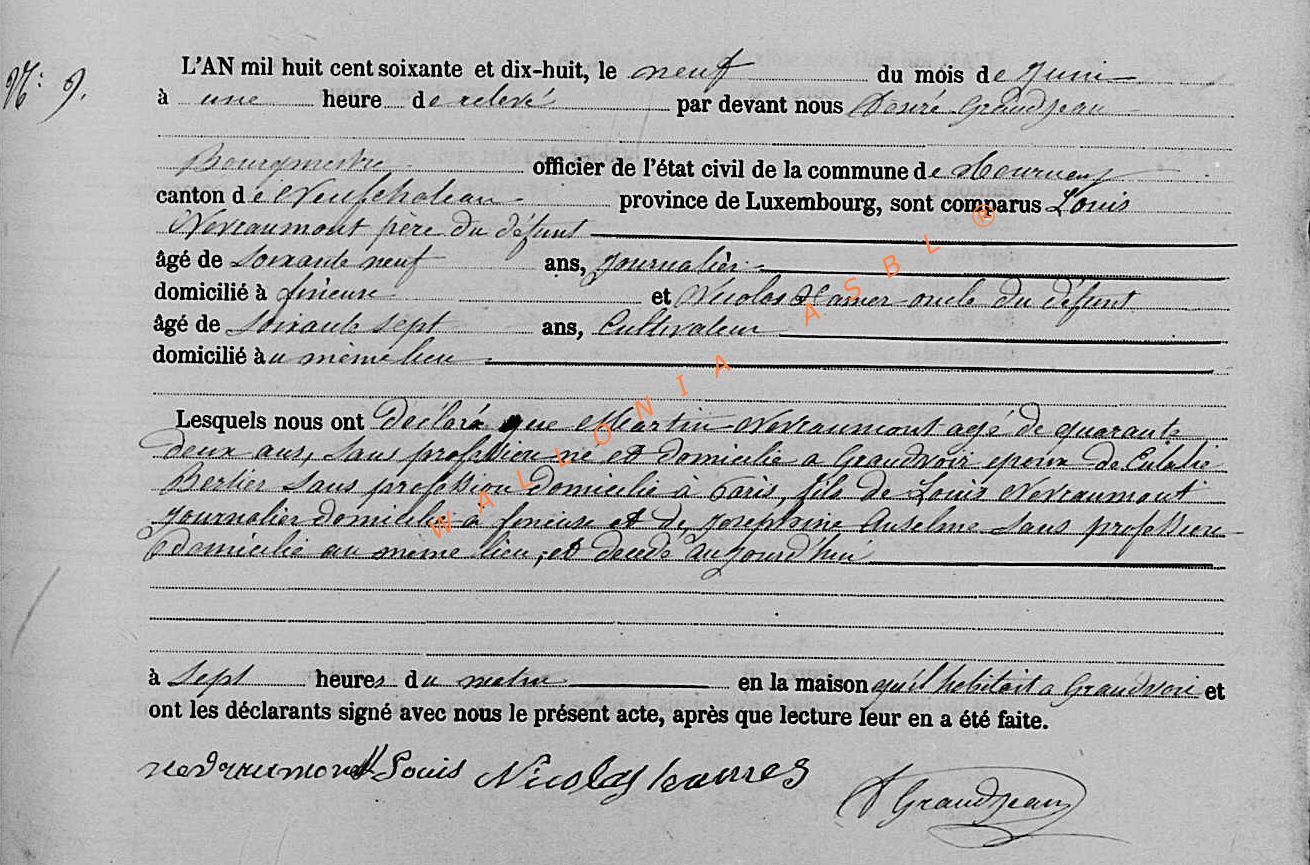 N: 9.
L'AN mil huit cent soixante et dix-huit, le neuf du mois de Juin
à une heure de relevé par devant nous Desiré Grandjean
Bourgmestre officier de l'état civil de la commune de Tournay
canton de Neufchateau province de Luxembourg, sont comparus Louis
Nevraumont père du défunt
âgé de soixante neuf ans, journalier
domicilié à et Nicolas Hamer oncle du défunt
âgé de soixante sept ans, Cultivateur
domicilié au même lieu
Lesquels nous ont déclaré que Martin Nevraumont agé de quarante
deux ans, sans profession né et domicilié a Grandvoir epoux de Eulalie
Bertier sans profession domicilié à Paris, fils de Louis Nevraumont
journalier domicilié à et de Josephine Anselme sans profession
domicilié au même lieu, est decedé aujourd'hui
à sept heures du matin en la maison qu'il habitait a Grandvoir et
ont les déclarants signé avec nous le présent acte, après que lecture leur en a été faite.
Louis Nicolas D Grandjean
WALLONIA ASBL ®